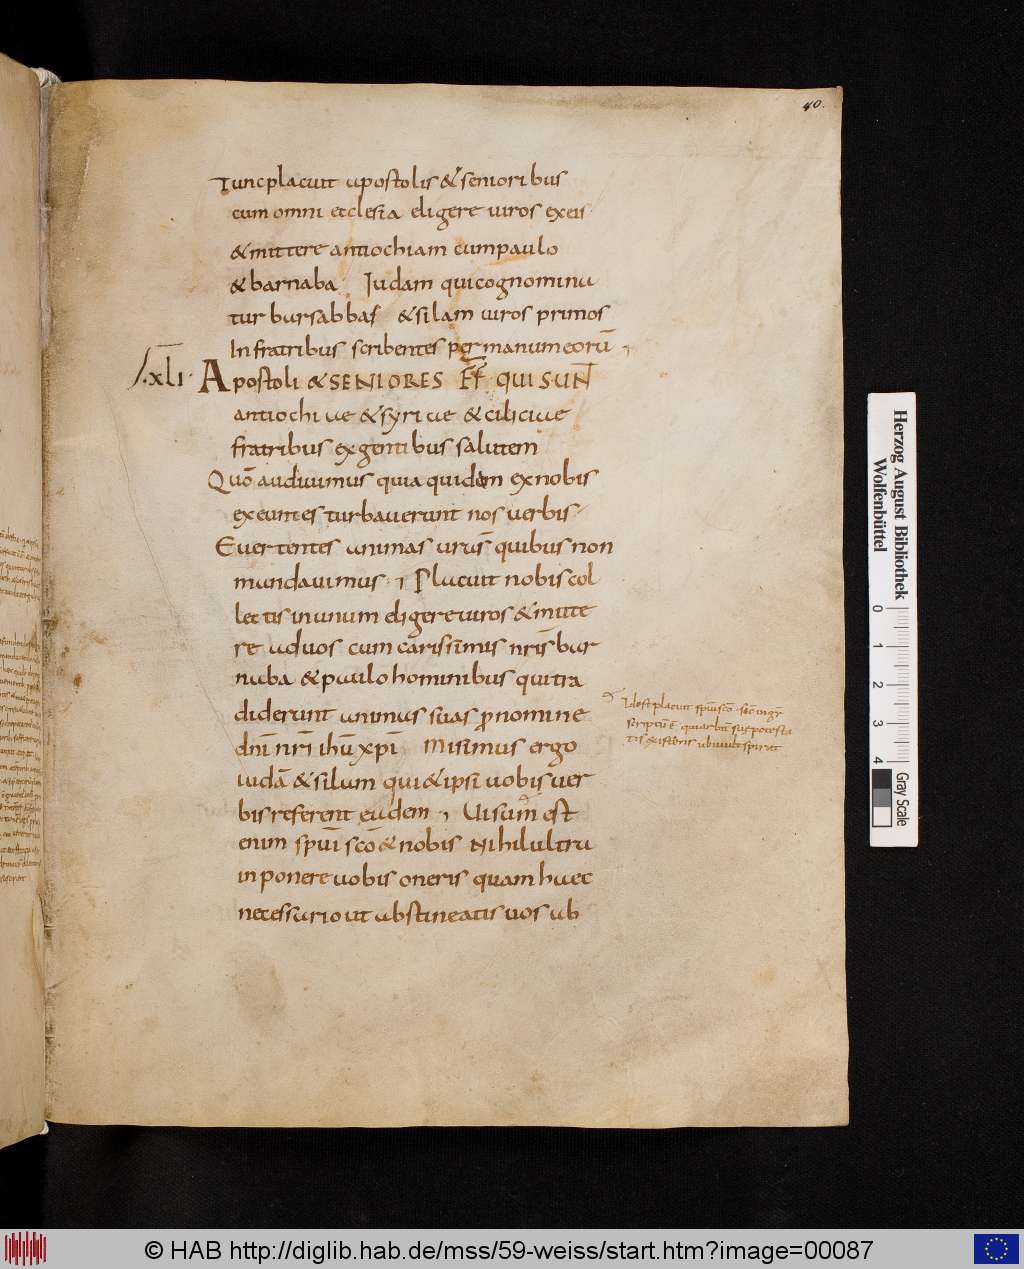 40.
Tunc placuit apostolis & senioribus
cum omni ecclesia eligere uiros ex eis
& mittere antiochiam cum paulo
& barnaba Iudam qui cognomina
tur barsabbas & silam uiros primos
In fratribus scribentes per manum eorū
xli. Apostoli & SENIORES FF QUI SUN̄
antiochiae & syriae & ciliciae
fratribus ex gentibus salutem
Quō audiuimus quia quidem ex nobis
exeuntes turbauerunt nos uerbis
Euertentes animas urās quibus non
mandauimus Placuit nobis col
lectis in unum eligere uiros & mitte
re ad uos cum carissimis nrīs bar
naba & paulo hominibus qui tra
diderunt animas suas pro nomine
dnī nrī ihū xpī Misimus ergo
iudā & silam qui & ipsi uobis uer
bis referent eadem Uisum est
enim spūi scō & nobis Nihil ultra
inponere uobis oneris quam haec
necessario ut abstineatis uos ab
Idest placuit spui sco
scriptū ē potesta
tis ubi uult spirat
Herzog August Bibliothek
Wolfenbüttel
0 1 2 3 4
Gray Scale
© HAB http://diglib.hab.de/mss/59-weiss/start.htm?image=00087